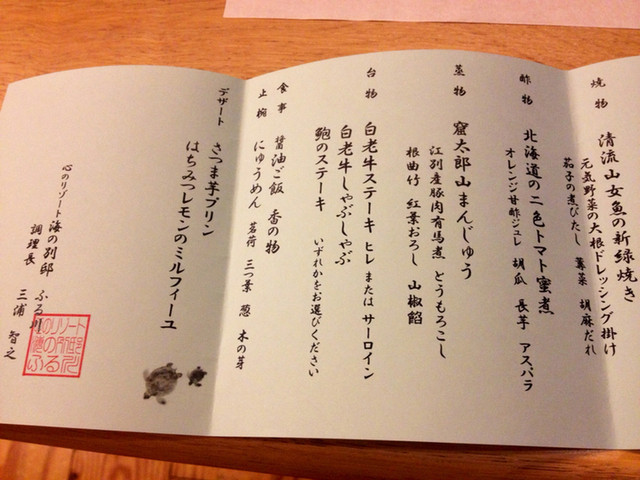 焼物
清流山女魚の新緑焼き
元気野菜の大根ドレッシング掛け
茄子の煮びたし 薯菜 胡麻だれ
酢物
北海道の二色トマト蜜煮
オレンジ甘酢ジュレ 胡瓜 長芋 アスパラ
蒸物
窟太郎山まんじゅう
江別産豚肉有馬煮 とうもろこし
根曲竹 紅葉おろし 山椒餡
台物
白老牛ステーキ ヒレ または サーロイン
白老牛しゃぶしゃぶ
鮑のステーキ いずれかをお選びください
食事 醤油ご飯 香の物
止椀 にゅうめん 茗荷 三つ葉 葱 木の芽
デザート
さつま芋プリン
はちみつレモンのミルフィーユ
心のリゾート 海の別邸 ふる川
調理長 三浦 智之